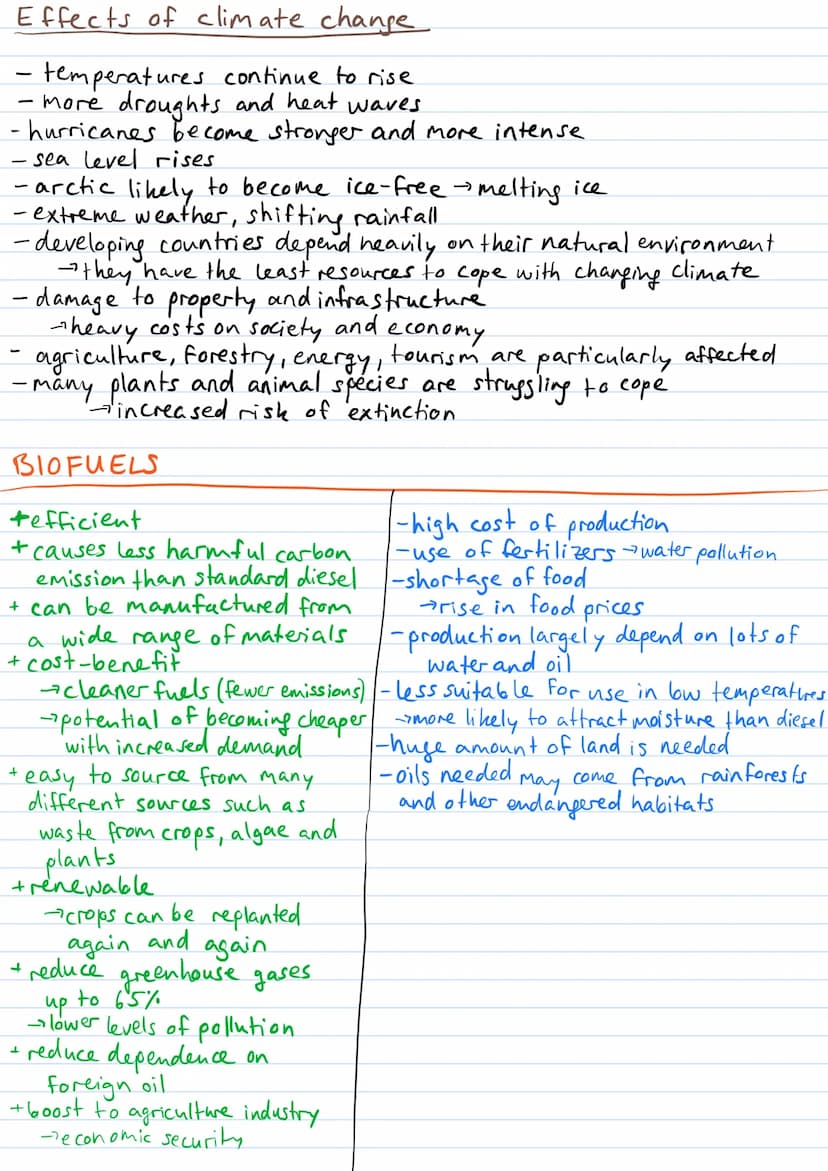 Effects of climate change
- temperatures continue to rise
- more droughts and heat waves
- hurricanes become stronger and more intense
- sea level rises
- arctic likely to become ice-free → melting ice
- extreme weather, shifting rainfall
- developing countries depend heavily on their natural environment
→ they have the least resources to cope with changing climate
- damage to property and infrastructure
→ heavy costs on society and economy
- agriculture, forestry, energy, tourism are particularly affected
- many plants and animal species are struggling to cope
→ increased risk of extinction
BIOFUELS
+ efficient
+ causes less harmful carbon
emission than standard diesel
+ can be manufactured from
a wide range of materials
+ cost-benefit
→ cleaner fuels (fewer emissions)
→ potential of becoming cheaper
with increased demand
+ easy to source from many
different sources such as
waste from crops, algae and
plants
+ renewable
→ crops can be replanted
again and again
+ reduce greenhouse gases
up to 65%
→ lower levels of pollution
+ reduce dependence on
foreign oil
+ boost to agriculture industry
→ economic security
- high cost of production
- use of fertilizers → water pollution
- shortage of food
→ rise in food prices
- production largely depend on lots of
water and oil
- less suitable for use in low temperatures
→ more likely to attract moisture than diesel
- huge amount of land is needed
- oils needed may come from rainforests
and other endangered habitats